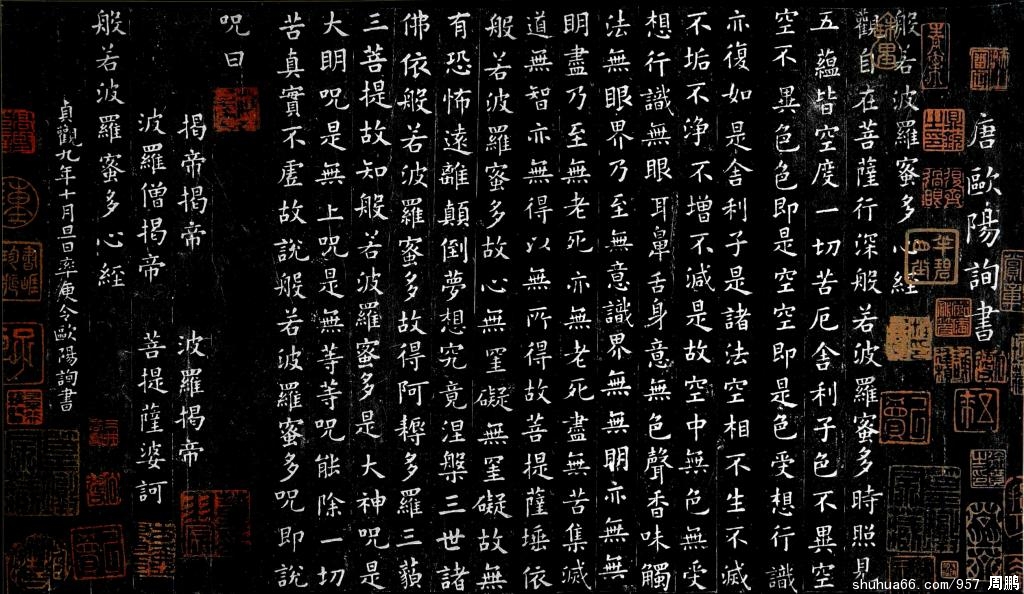 唐歐陽詢書
般若波羅蜜多心經
觀自在菩薩行深般若波羅蜜多時照見
五蘊皆空度一切苦厄舍利子色不異空
空不異色色即是空空即是色受想行識
亦復如是舍利子是諸法空相不生不滅
不垢不淨不增不減是故空中無色無受
想行識無眼耳鼻舌身意無色聲香味觸
法無眼界乃至無意識界無無明亦無無
明盡乃至無老死亦無老死盡無苦集滅
道無智亦無得以無所得故菩提薩埵依
般若波羅蜜多故心無罣礙無罣礙故無
有恐怖遠離顛倒夢想究竟涅槃三世諸
佛依般若波羅蜜多故得阿耨多羅三藐
三菩提故知般若波羅蜜多是大神呪是
大明呪是無上呪是無等等呪能除一切
苦真實不虛故說般若波羅蜜多呪即說
呪曰
揭帝揭帝 波羅揭帝
波羅僧揭帝 菩提薩婆訶
般若波羅蜜多心經
貞觀九年十月旦日率更令歐陽詢書
shuhua66.com/957 周鹏